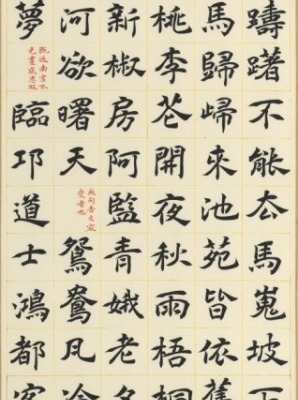 躊躇不能厺馬嵬坡下
馬歸㱕來池苑皆依舊
桃李花開夜秋雨梧桐
新椒房阿監青娥老夕
河欲曙天鴛鴦瓦冷
夢臨邛道士鴻都客